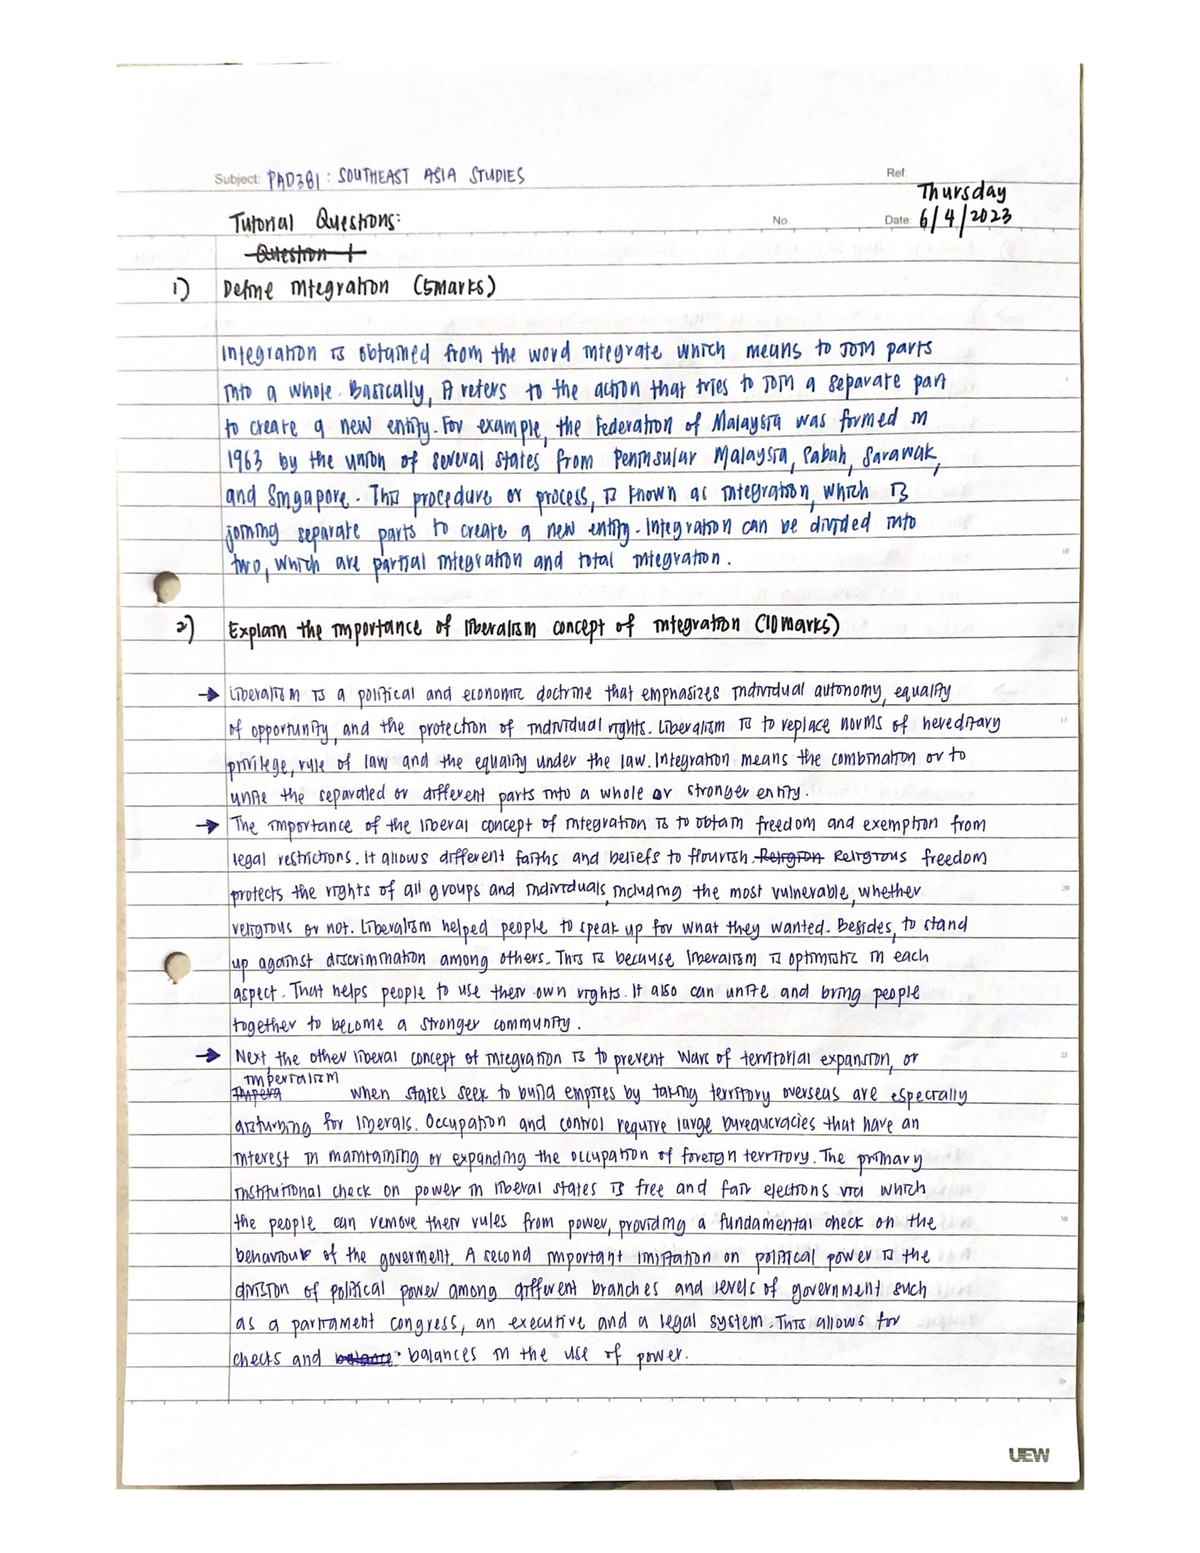 Subject: PAD381 : SOUTHEAST ASIA STUDIES
Ref:
Thursday
Tutorial Questions:
No.
Date: 6/4/2023
Question 1
1) Define integration (5marks)
Integration is obtained from the word integrate which means to join parts
into a whole. Basically, it refers to the action that tries to join a separate part
to create a new entity. For example, the Federation of Malaysia was formed in
1963 by the union of several states from Peninsular Malaysia, Sabah, Sarawak,
and Singapore. This procedure or process, is known as integration, which is
joining separate parts to create a new entity. Integration can be divided into
two, which are partial integration and total integration.
10
2) Explain the importance of liberalism concept of integration (10marks)
→ Liberalism is a political and economic doctrine that emphasizes individual autonomy, equality
of opportunity, and the protection of individual rights. Liberalism is to replace norms of hereditary
15
privilege, rule of law and the equality under the law. Integration means the combination or to
unite the separated or different parts into a whole or stronger entity.
→ The importance of the liberal concept of integration is to obtain freedom and exemption from
legal restrictions. It allows different faiths and beliefs to flourish. Religion Religious freedom
protects the rights of all groups and individuals, including the most vulnerable, whether
20
religious or not. Liberalism helped people to speak up for what they wanted. Besides, to stand
up against discrimination among others. This is because liberalism is optimistic in each
aspect. That helps people to use their own rights. It also can unite and bring people
together to become a stronger community.
→ Next, the other liberal concept of integration is to prevent wars of territorial expansion, or
25
imperialism
Impera when states seek to build empires by taking territory overseas are especially
disturbing for liberals. Occupation and control require large bureaucracies that have an
interest in maintaining or expanding the occupation of foreign territory. The primary
institutional check on power in liberal states is free and fair elections via which
the people can remove their rules from power, providing a fundamental check on the
30
behaviour of the goverment. A second important limitation on political power is the
division of political power among different branches and levels of government such
as a parliament congress, an executive and a legal system. This allows for
checks and balance balances in the use of power.
UEW